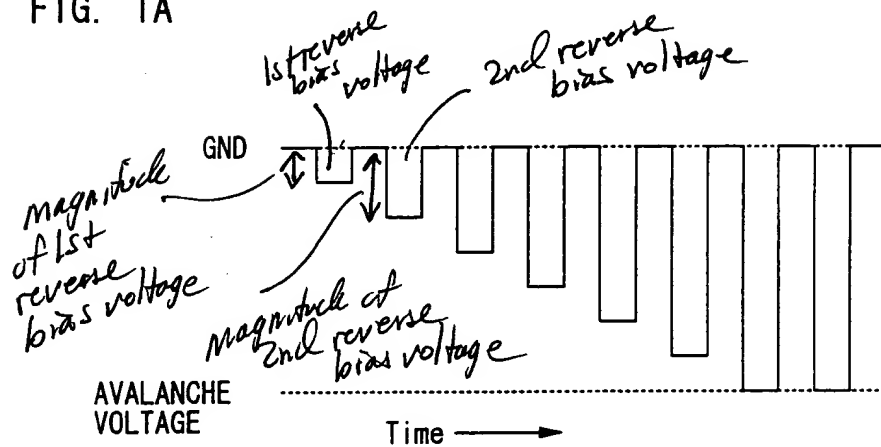 FIG. 1A
1st reverse
bias
voltage
2nd reverse
bias voltage
GND
Magnitude
of 1st
reverse
bias voltage
Magnitude of
2nd reverse
bias voltage
AVALANCHE
VOLTAGE
Time